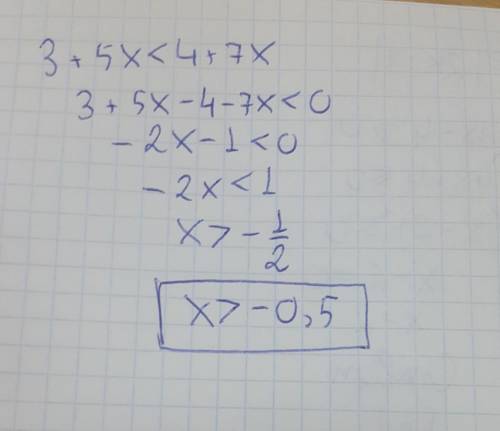 3 + 5x < 4 + 7x
3 + 5x - 4 - 7x < 0
- 2x - 1 < 0
- 2x < 1
x > - 1/2
x > - 0,5